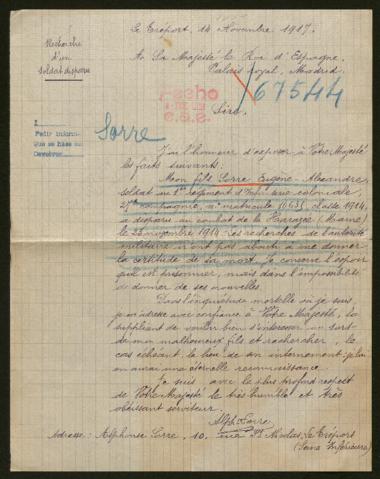 Le Tréport, 14 Novembre 1917.
Recherche
d'un
soldat disparu
A Sa Majesté le Roi d'Espagne,
Palais royal, Madrid.
67544
Fecho
Sire,
Sorre
J'ai l'honneur d'exposer à Votre Majesté
les faits suivants.
Mon fils Sorre Eugène-Alexandre,
soldat au 1er régiment d'Infrie coloniale,
27me compagnie, no matricule classe 1914,
a disparu au combat de la Harazée (Marne)
le novembre 1914. Les recherches de l'autorité
militaire n'ont pas abouti à me donner
la certitude de sa mort, je conserve l'espoir
qu'il est prisonnier, mais dans l'impossibilité
de donner de ses nouvelles.
Dans l'inquiétude mortelle où je suis,
je m'adresse avec confiance à Votre Majesté, la
suppliant de vouloir bien s'intéresser au sort
de mon malheureux fils et rechercher, le
cas échéant, le lieu de son internement; je lui
en aurai une éternelle reconnaissance.
Je suis avec le plus profond respect
de Votre Majesté le très humble et très
obéissant serviteur.
Alph Sorre
Adresse: Alphonse Sorre, 10, rue St Nicolas, Le Tréport
(Seine Inférieure)